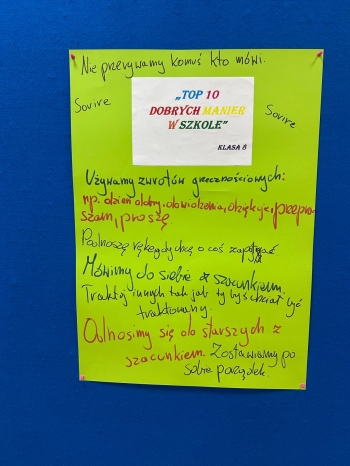 Nie przerywamy komuś kto mówi.
Savoire
Savoire
„TOP 10
DOBRYCH MANIER
W SZKOLE"
KLASA 8
Używamy zwrotów grzecznościowych:
np. dzień dobry, do widzenia, dziękuję, przepra-
szam, proszę
Podnoszę rękę gdy chcę o coś zapytać
Mówimy do siebie z szacunkiem.
Traktuj innych tak jak ty byś chciał być
traktowany.
Odnosimy się do starszych z
szacunkiem. Zostawiamy po
sobie porządek.